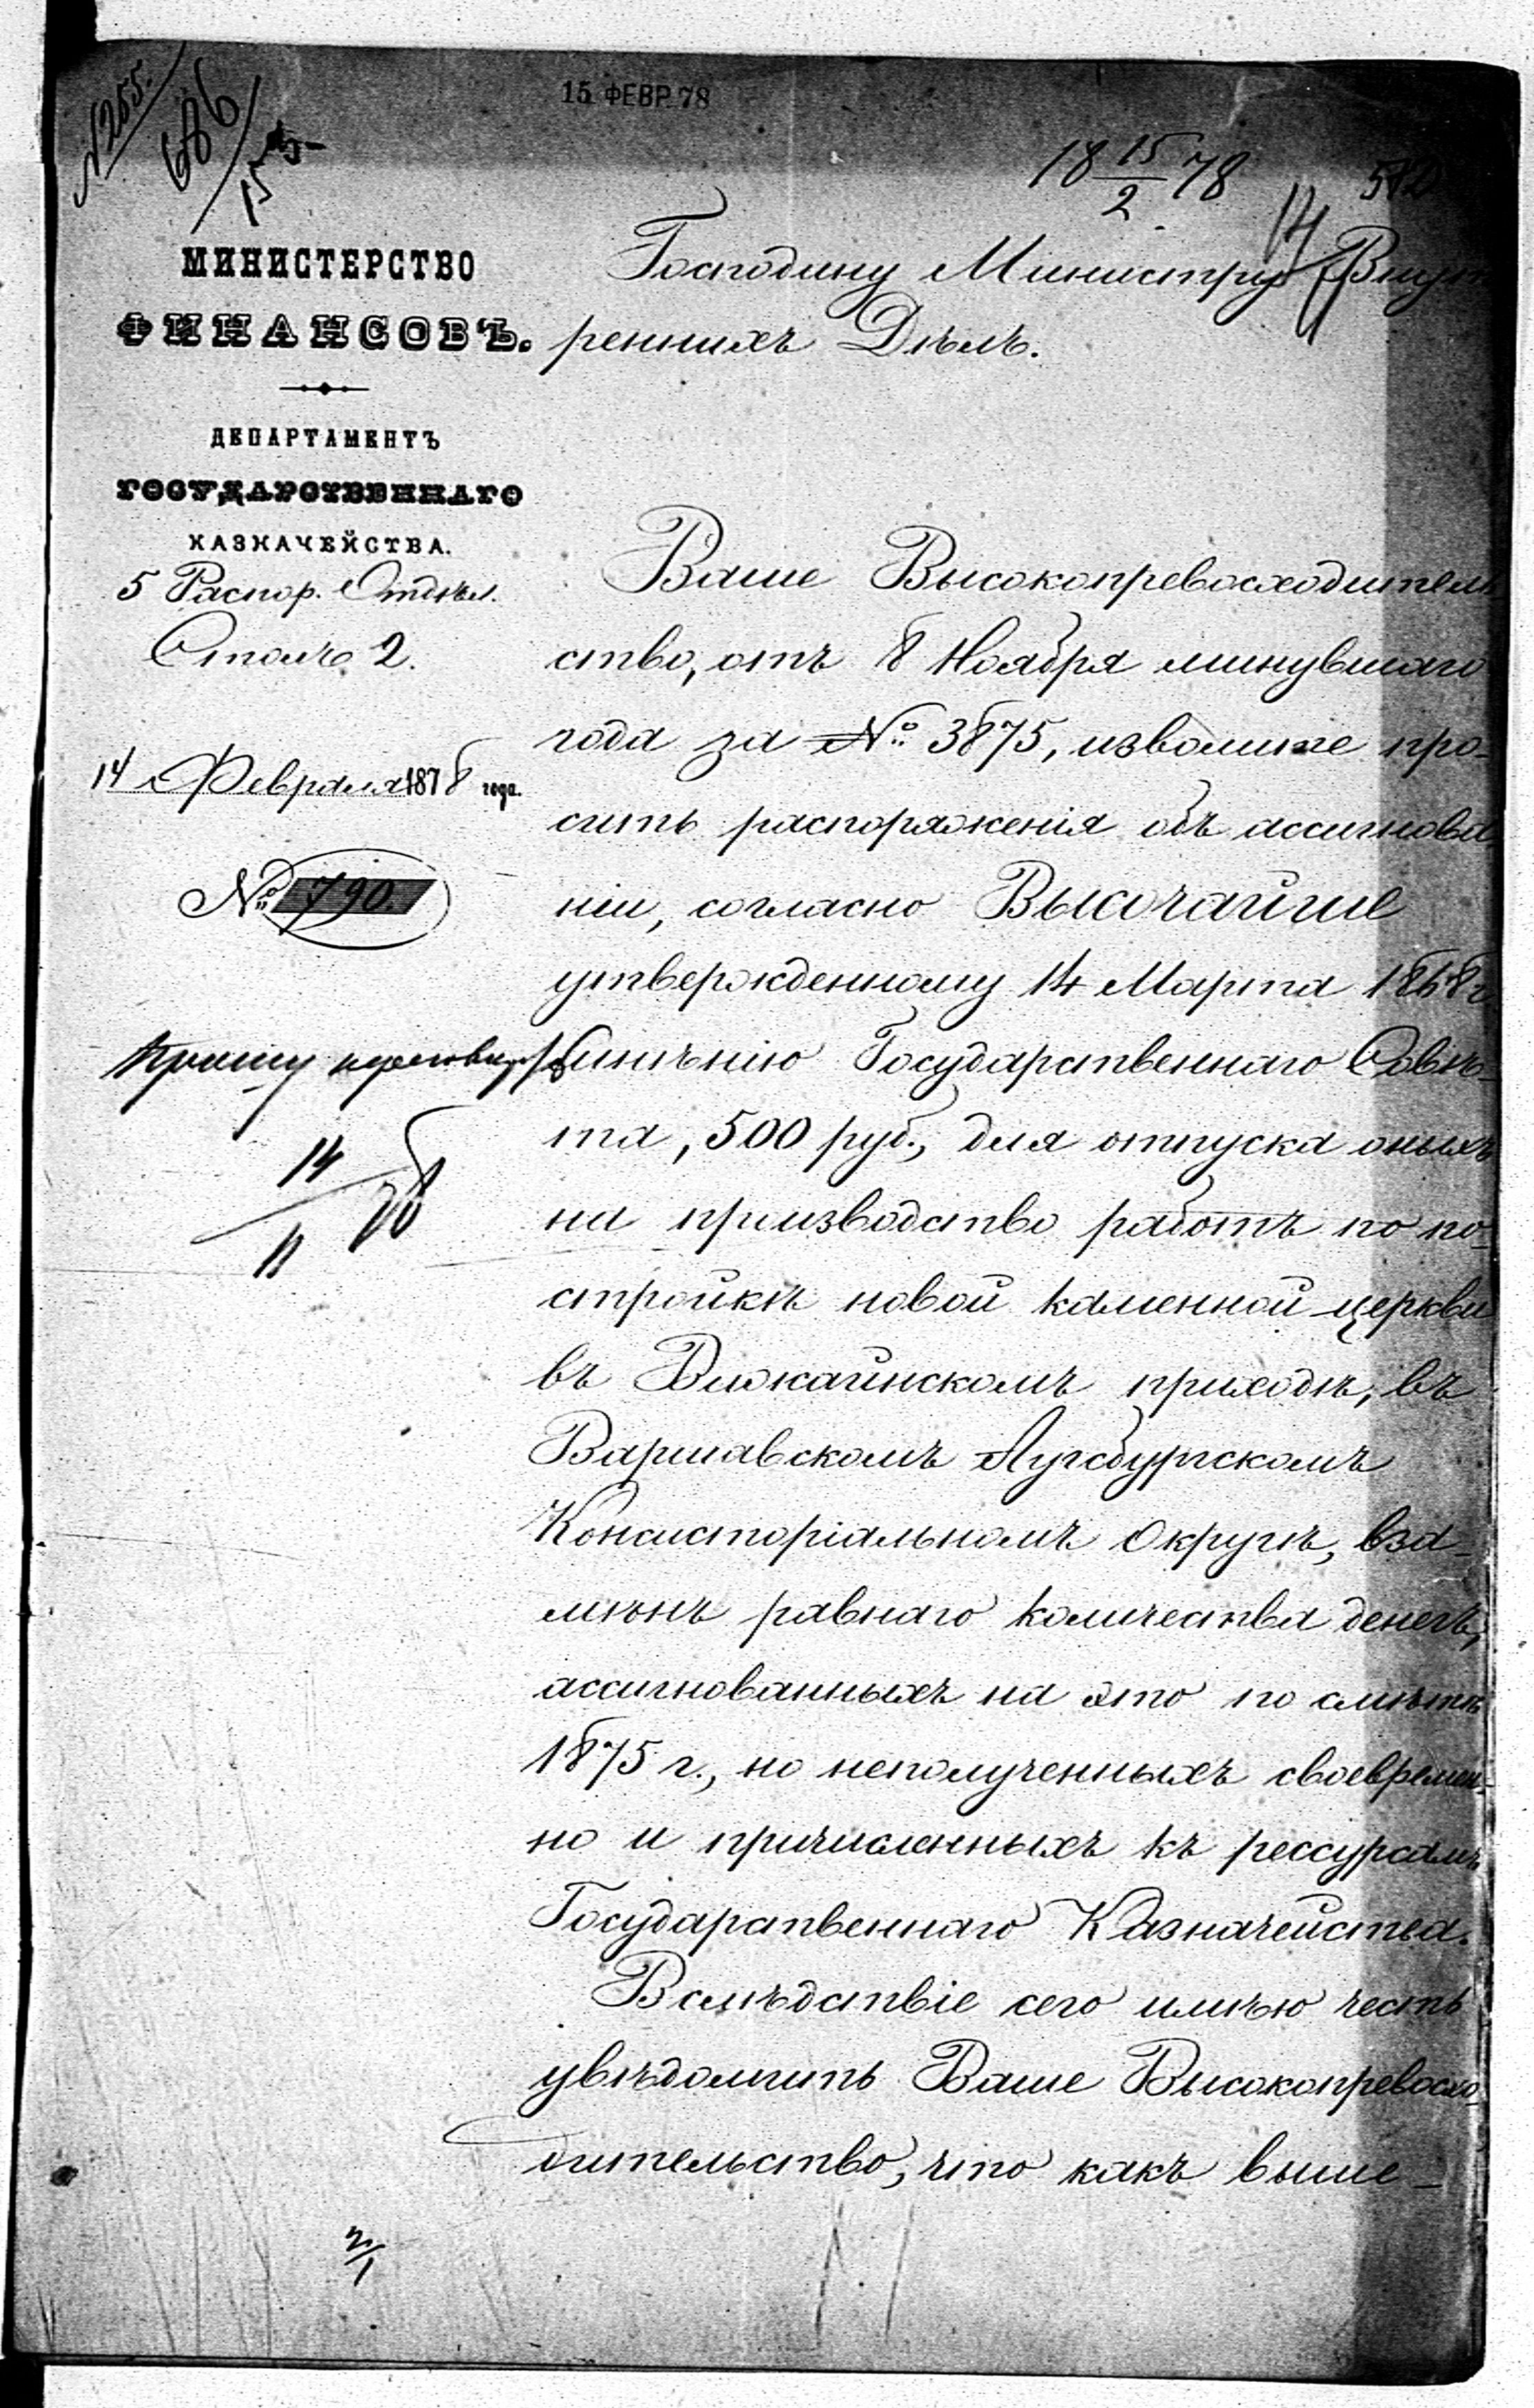 15 ФЕВР 78
№ 255.
686
15
18 15/2 78
512
14
МИНИСТЕРСТВО
ФИНАНСОВЪ.
ДЕПАРТАМЕНТЪ
ГОСУДАРСТВЕННАГО
КАЗНАЧЕЙСТВА.
5 Распор. Отдѣл.
Столъ 2.
14 Февраля 1878 года.
№ 790.
Прошу
14/II 78
Господину Министру Внут
реннихъ Дѣлъ.
Ваше Высокопревосходитель
ство, отъ 8 Ноября минувшаго
года за № 3875, изволите про-
сить распоряженія объ ассигнова
ніи, согласно Высочайше
утвержденному 14 Марта 1868 г.
мнѣнію Государственнаго Совѣ-
та, 500 руб., для отпуска оныхъ
на производство работъ по по-
стройкѣ новой каменной церкви
въ Вижайнскомъ приходѣ, въ
Варшавскомъ Аугсбургскомъ
Консисторіальномъ Округѣ, вза-
мѣнъ равнаго количества денегъ,
ассигнованныхъ на это по смѣтѣ
1875 г., но неполученныхъ своевремен-
но и причисленныхъ къ рессурсамъ
Государственнаго Казначейства.
Вслѣдствіе сего имѣю честь
увѣдомить Ваше Высокопревосхо-
дительство, что какъ выше-
2/1